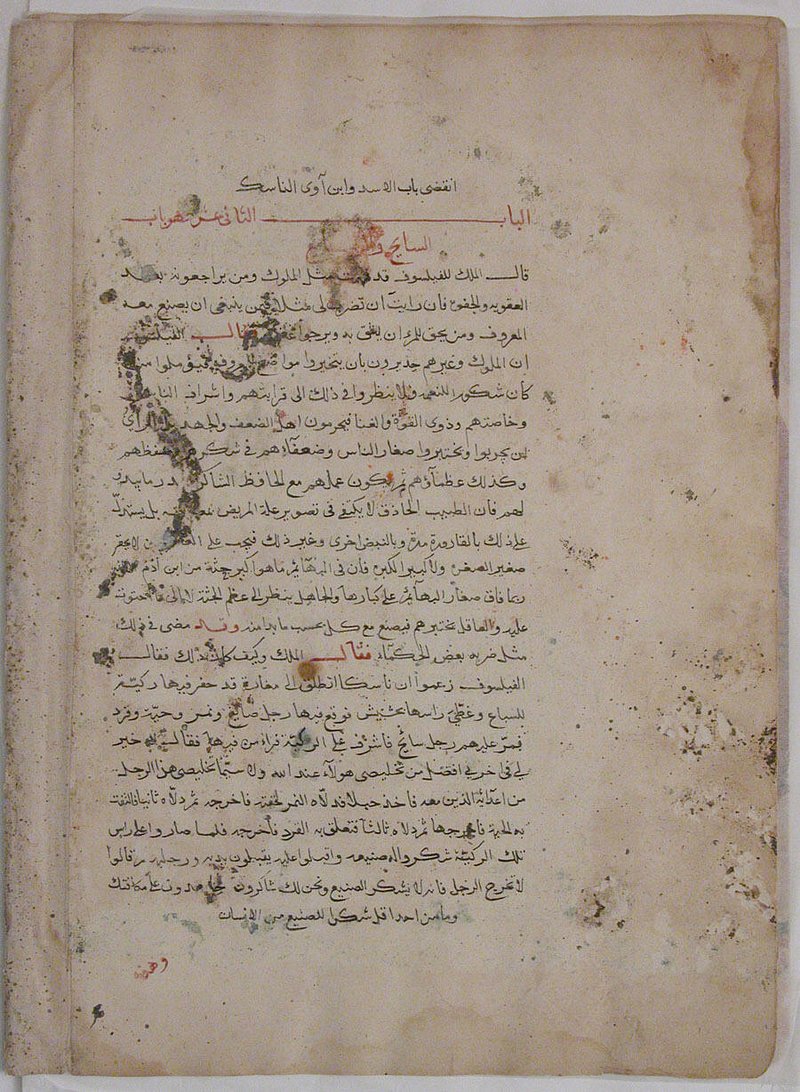 انقضى باب الاسد وابن آوى الناسك
الباب الثانى عشر وهو باب
السايح و
قال الملك للفيلسوف قد مثل الملوك ومن يراجعونه بعد
العقوبه والجفوة فان رايت ان تضرب لى مثلا فيمن ينبغى ان يصنع معه
المعروف ومن يحق للمرء ان يثق به ويرجوا قال الفيلسوف
ان الملوك وغيرهم جديرون بان يتخيروا مواضع
كان شكورا للنعمه ولا ينظروا فى ذلك الى قرابتهم واشراف الناس
وخاصتهم وذوى القوة والغنا فيحرمون اهل الضعف والجهد الراى
ان يجربوا ويختبروا صغار الناس وضعفآءهم فى شكرهم وحفظهم
وكذلك عظمآؤهم ثم يكون عملهم مع الحافظ الشاكر
لهم فان الطبيب الحاذق لا يكتفى فى تصوير علة المريض بل يستدل
على ذلك بالقارورة مرة وبالنبض اخرى وغير ذلك فيجب على لا يحقر
صغيرا لصغره ولا كبيرا لكبره فان فى البهآئم ما هو اكبر جثة من ابن آدم
ربما فاق صغار البهآئم على كبارها والجاهل ينظر الى عظم الجثة
عليه والعاقل يختبرهم فيصنع مع كل بحسب ما يبدا منه وقد مضى فى ذلك
مثل ضربه بعض الحكمآء فقال الملك وكيف كان ذلك فقال
الفيلسوف زعموا ان ناسكا انطلق الى مغارة قد حفر فيها ركيّة
للسباع وغطى راسها بحشيش فوقع فيها رجل صائغ ونمر وحيّة وقرد
فمرّ عليهم رجل سائح فاشرف على الركيّة فراء من فيها فقال خير
لى فى اخرتى افضل من تخليصى هولآء عند الله ولا سيّما تخليصى هذا الرجل
من اعدائه الذين معه فاخذ حبلا فدلّاه النمر لخفته فاخرجه ثم دلّاه ثانيا فالتفت
به الحية فاخرجها ثم دلّاه ثالثا فتعلق به القرد فاخرجه فلما صاروا على راس
تلك الركيّة شكروا له صنيعه واقبلوا عليه يقبلون يديه ورجليه وقالوا
لا تخرج الرجل فانه لا يشكر الصنيع ونحن لك شاكرون على مكافاتك
وما من احد اقل شكرا للصنيع من الانسان